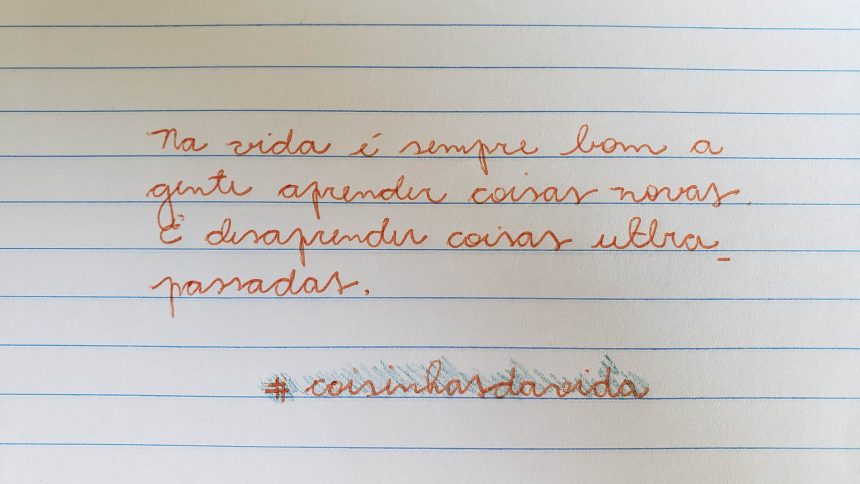 Na vida é sempre bom a
gente aprender coisas novas.
E desaprender coisas ultra_
passadas.
#coisinhasdavida